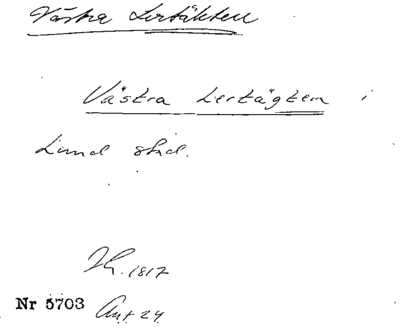 Västra Lertäkten
Västra Lertägten i
Lund stad.
Th. 1817
Nr 5703 Ant 24